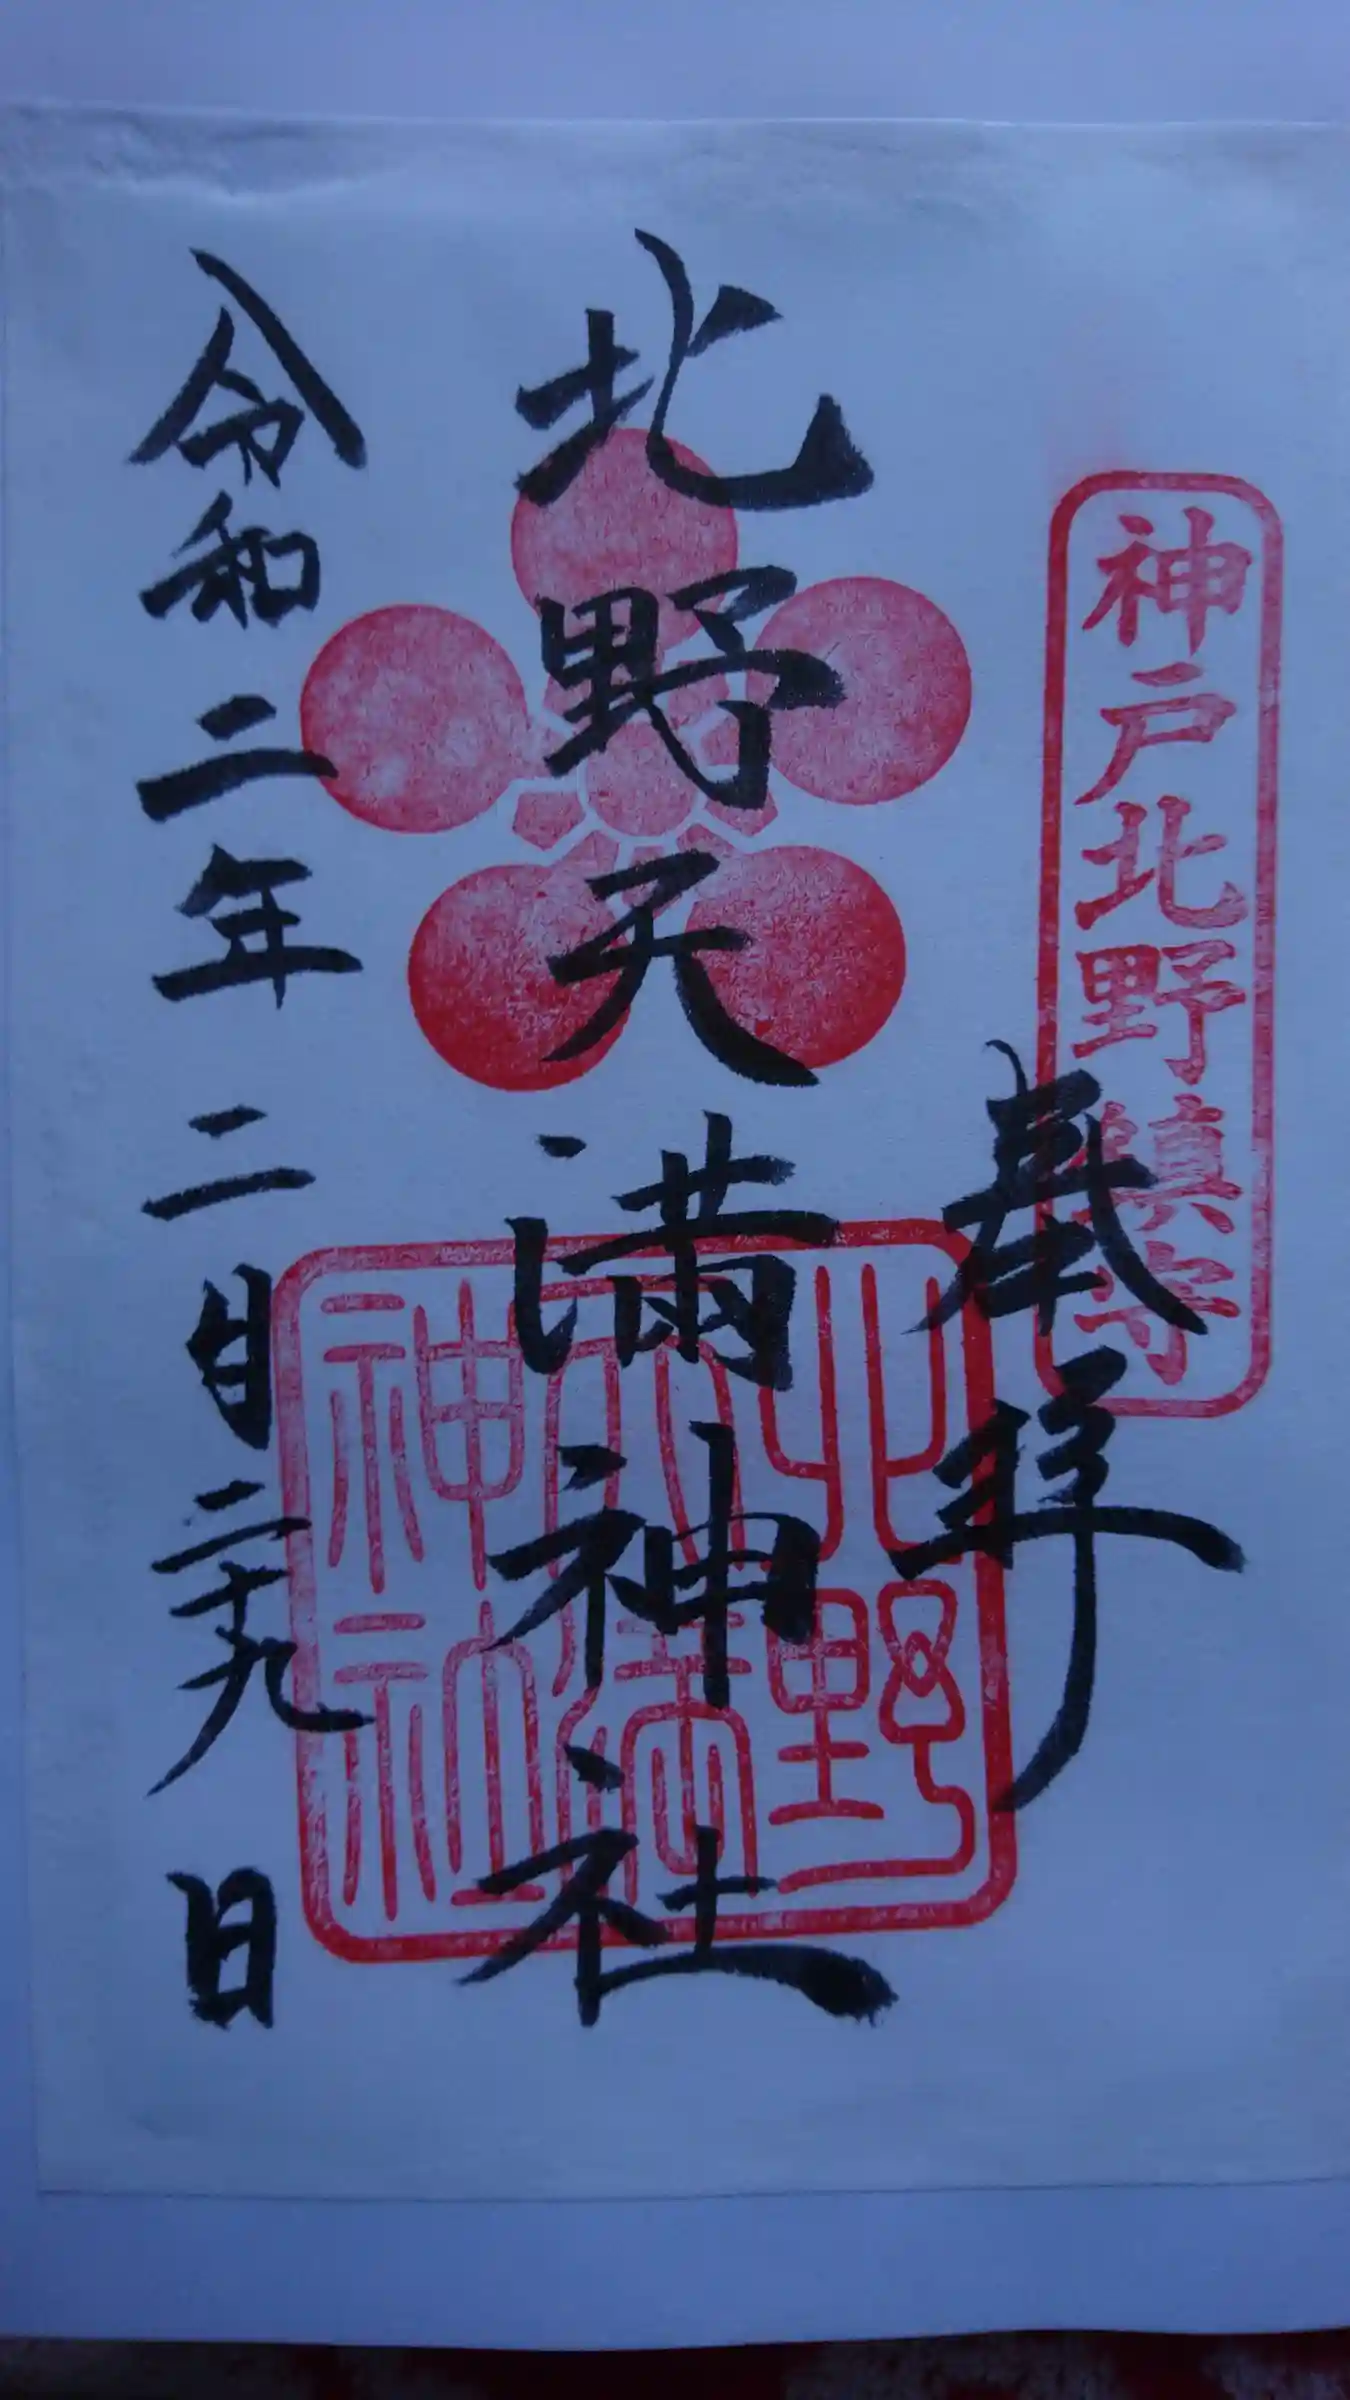 神戸北野鎮守
奉拝
北野天満神社
北野
天満
神社
令和二年二月二十九日